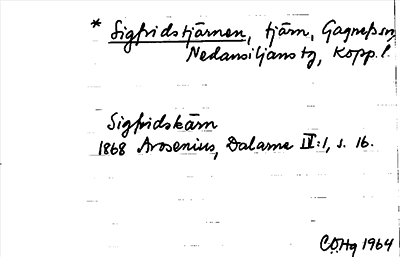 * Sigfridstjärnen, tjärn, Gagnefs sn,
Nedansiljans tg, Kopp. l.
Sigfridskärn
1868 Arosenius, Dalarne IV:1, s. 16.
CÖHg 1964